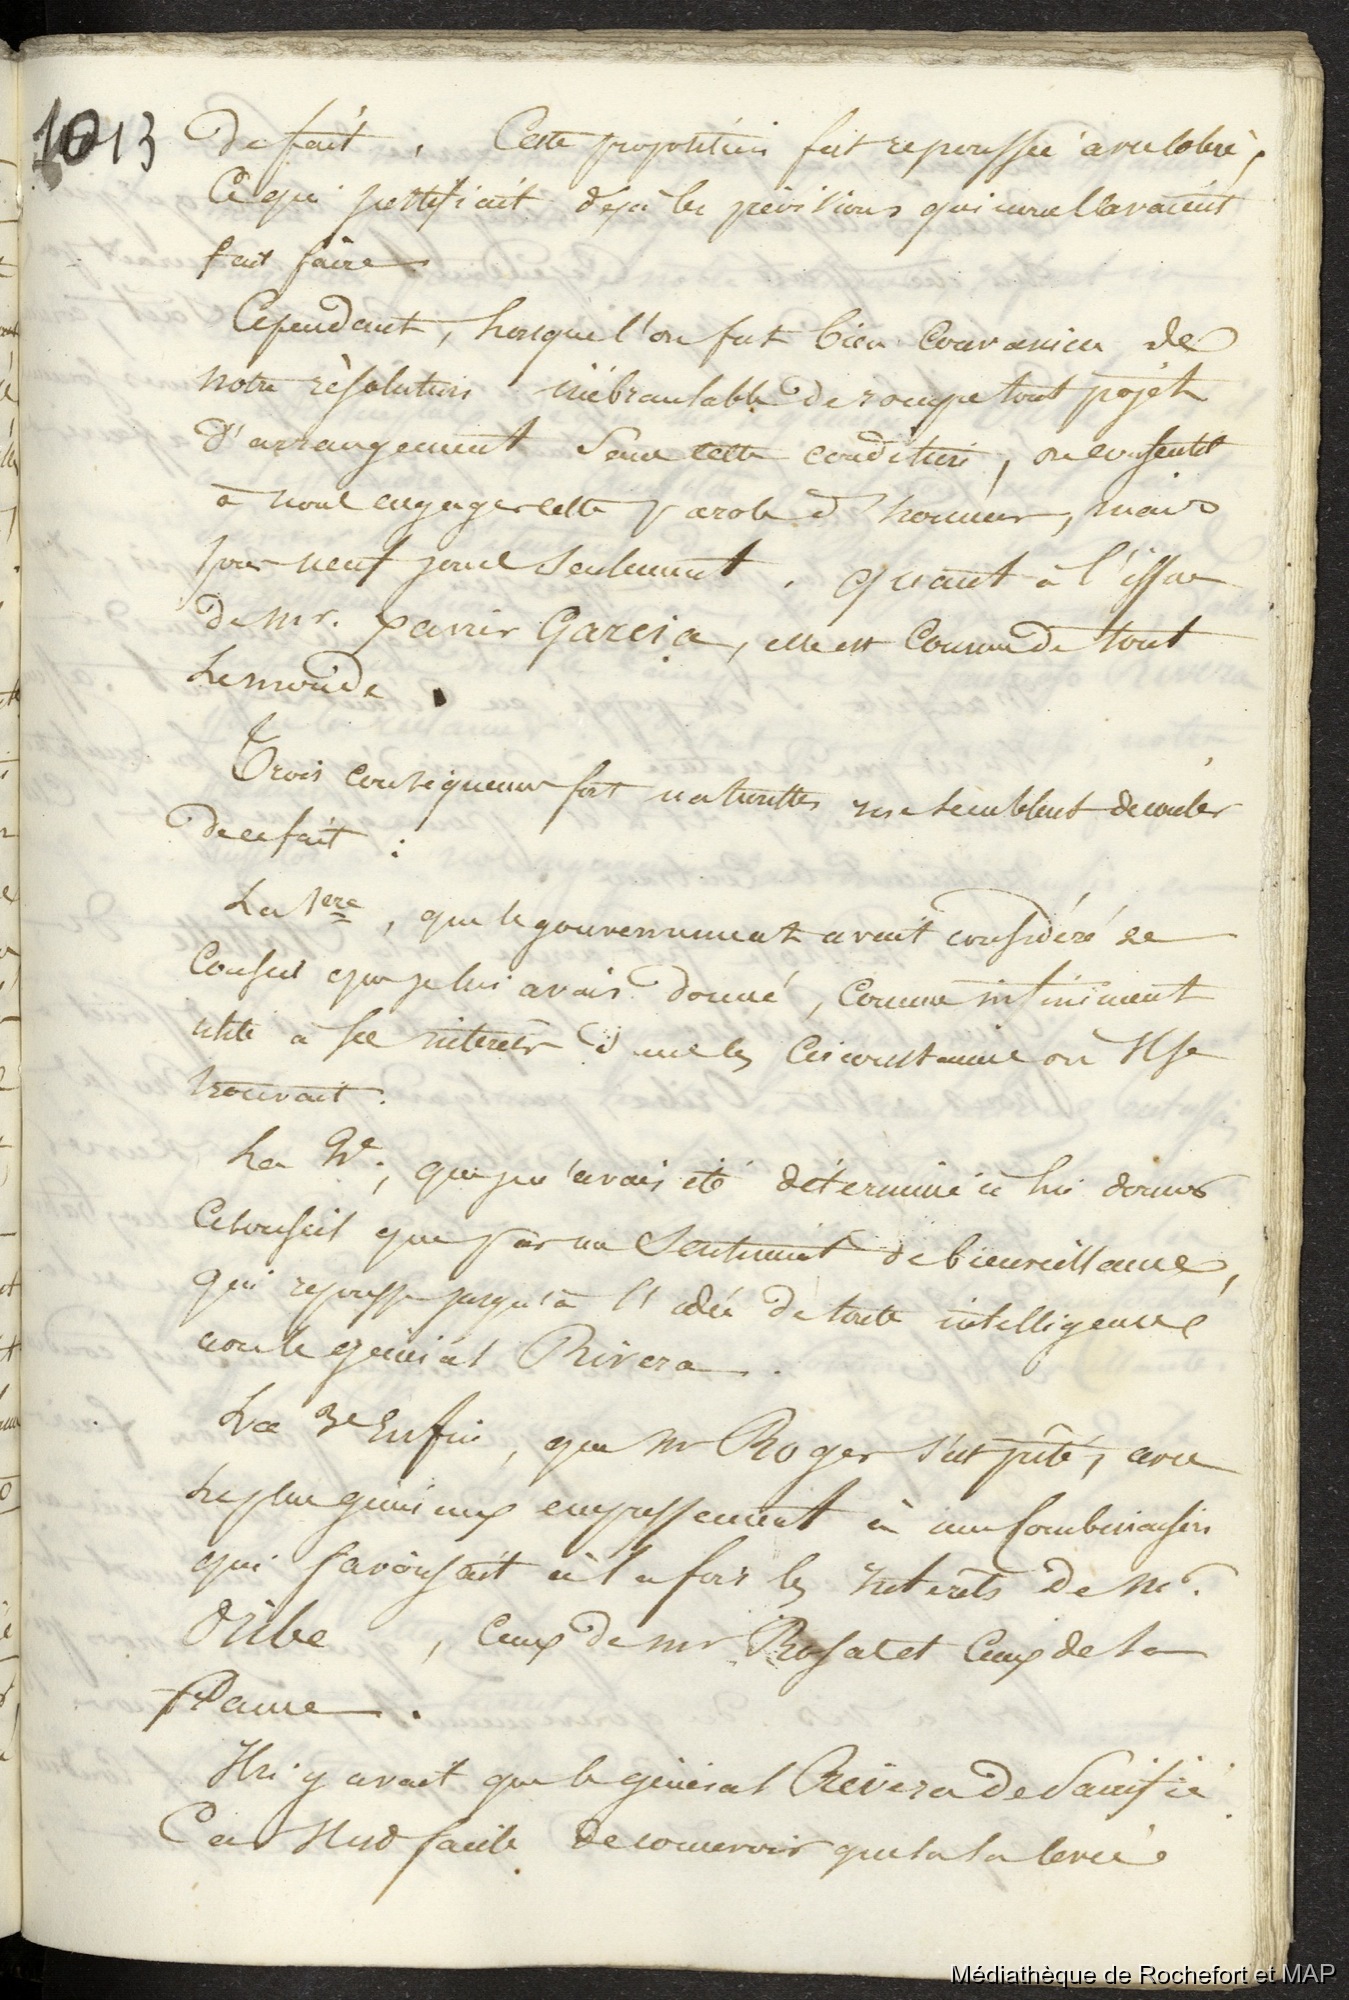 1013
De fait. Cette proposition fut repoussée avec colère,
Ce qui justifiait déjà les prévisions qui nous l'avaient
fait faire
Cependant, lorsque l'on fut bien convaincu de
notre résolution inébranlable de rompre tout projet
d'arrangement sans cette condition, on consentit
à nous engager cette parole d'honneur, mais
pour neuf jours seulement. quant à l'issue
de mr. xavier Garcia, elle est connue de tout
le monde.
Trois conséquences fort naturelles me semblent découler
de ce fait :
La 1ere, que le gouvernement avait considéré ce
Conseil que je lui avais donné, comme infiniment
utile à ses intérêts dans les circonstances où il se
trouvait.
La 2e, que je n'avais été déterminé à lui donner
ce conseil que par un sentiment de bienveillance,
qui repousse jusqu'à l'idée de toute intelligence
avec le général Rivera.
La 3e Enfin, que mr Roger s'est prêté, avec
le plus généreux empressement à une combinaison
qui favorisait à la fois les intérêts de mr.
Oribe, ceux de mr Rosas et ceux de la
france.
Il n'y avait que le général Rivera de sacrifié
Car il est facile de concevoir que la levée